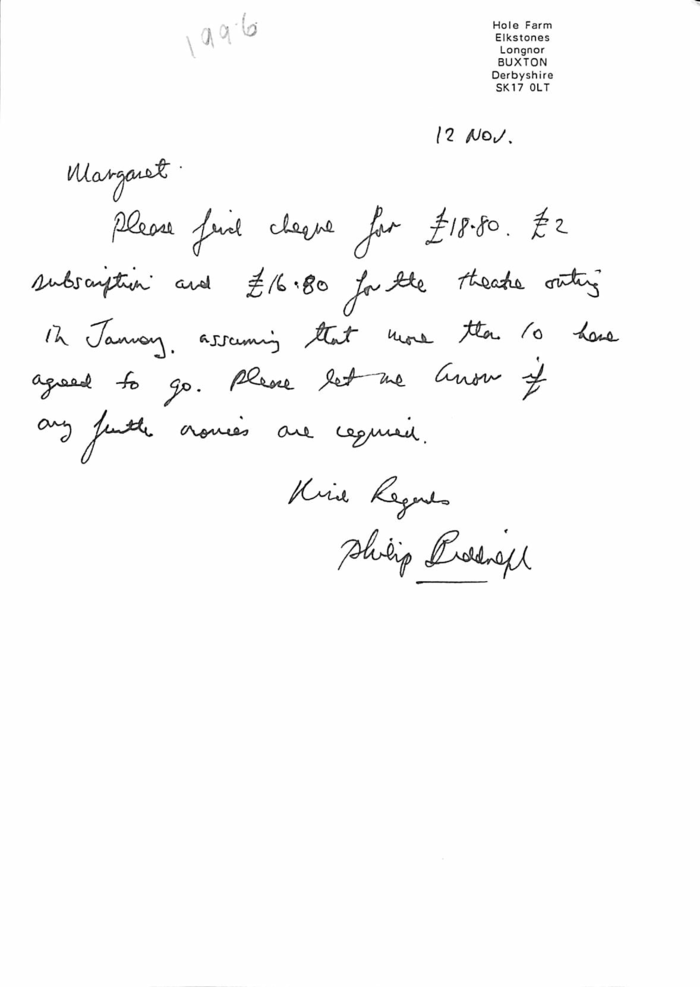 1996
Hole Farm
Elkstones
Longnor
BUXTON
Derbyshire
SK17 0LT
12 Nov.
Margaret.
Please find cheque for £18.80. £2
subscription and £16.80 for the theatre outing
in January, assuming that more than 10 have
agreed to go. Please let me know if
any further monies are required.
Kind Regards
Philip